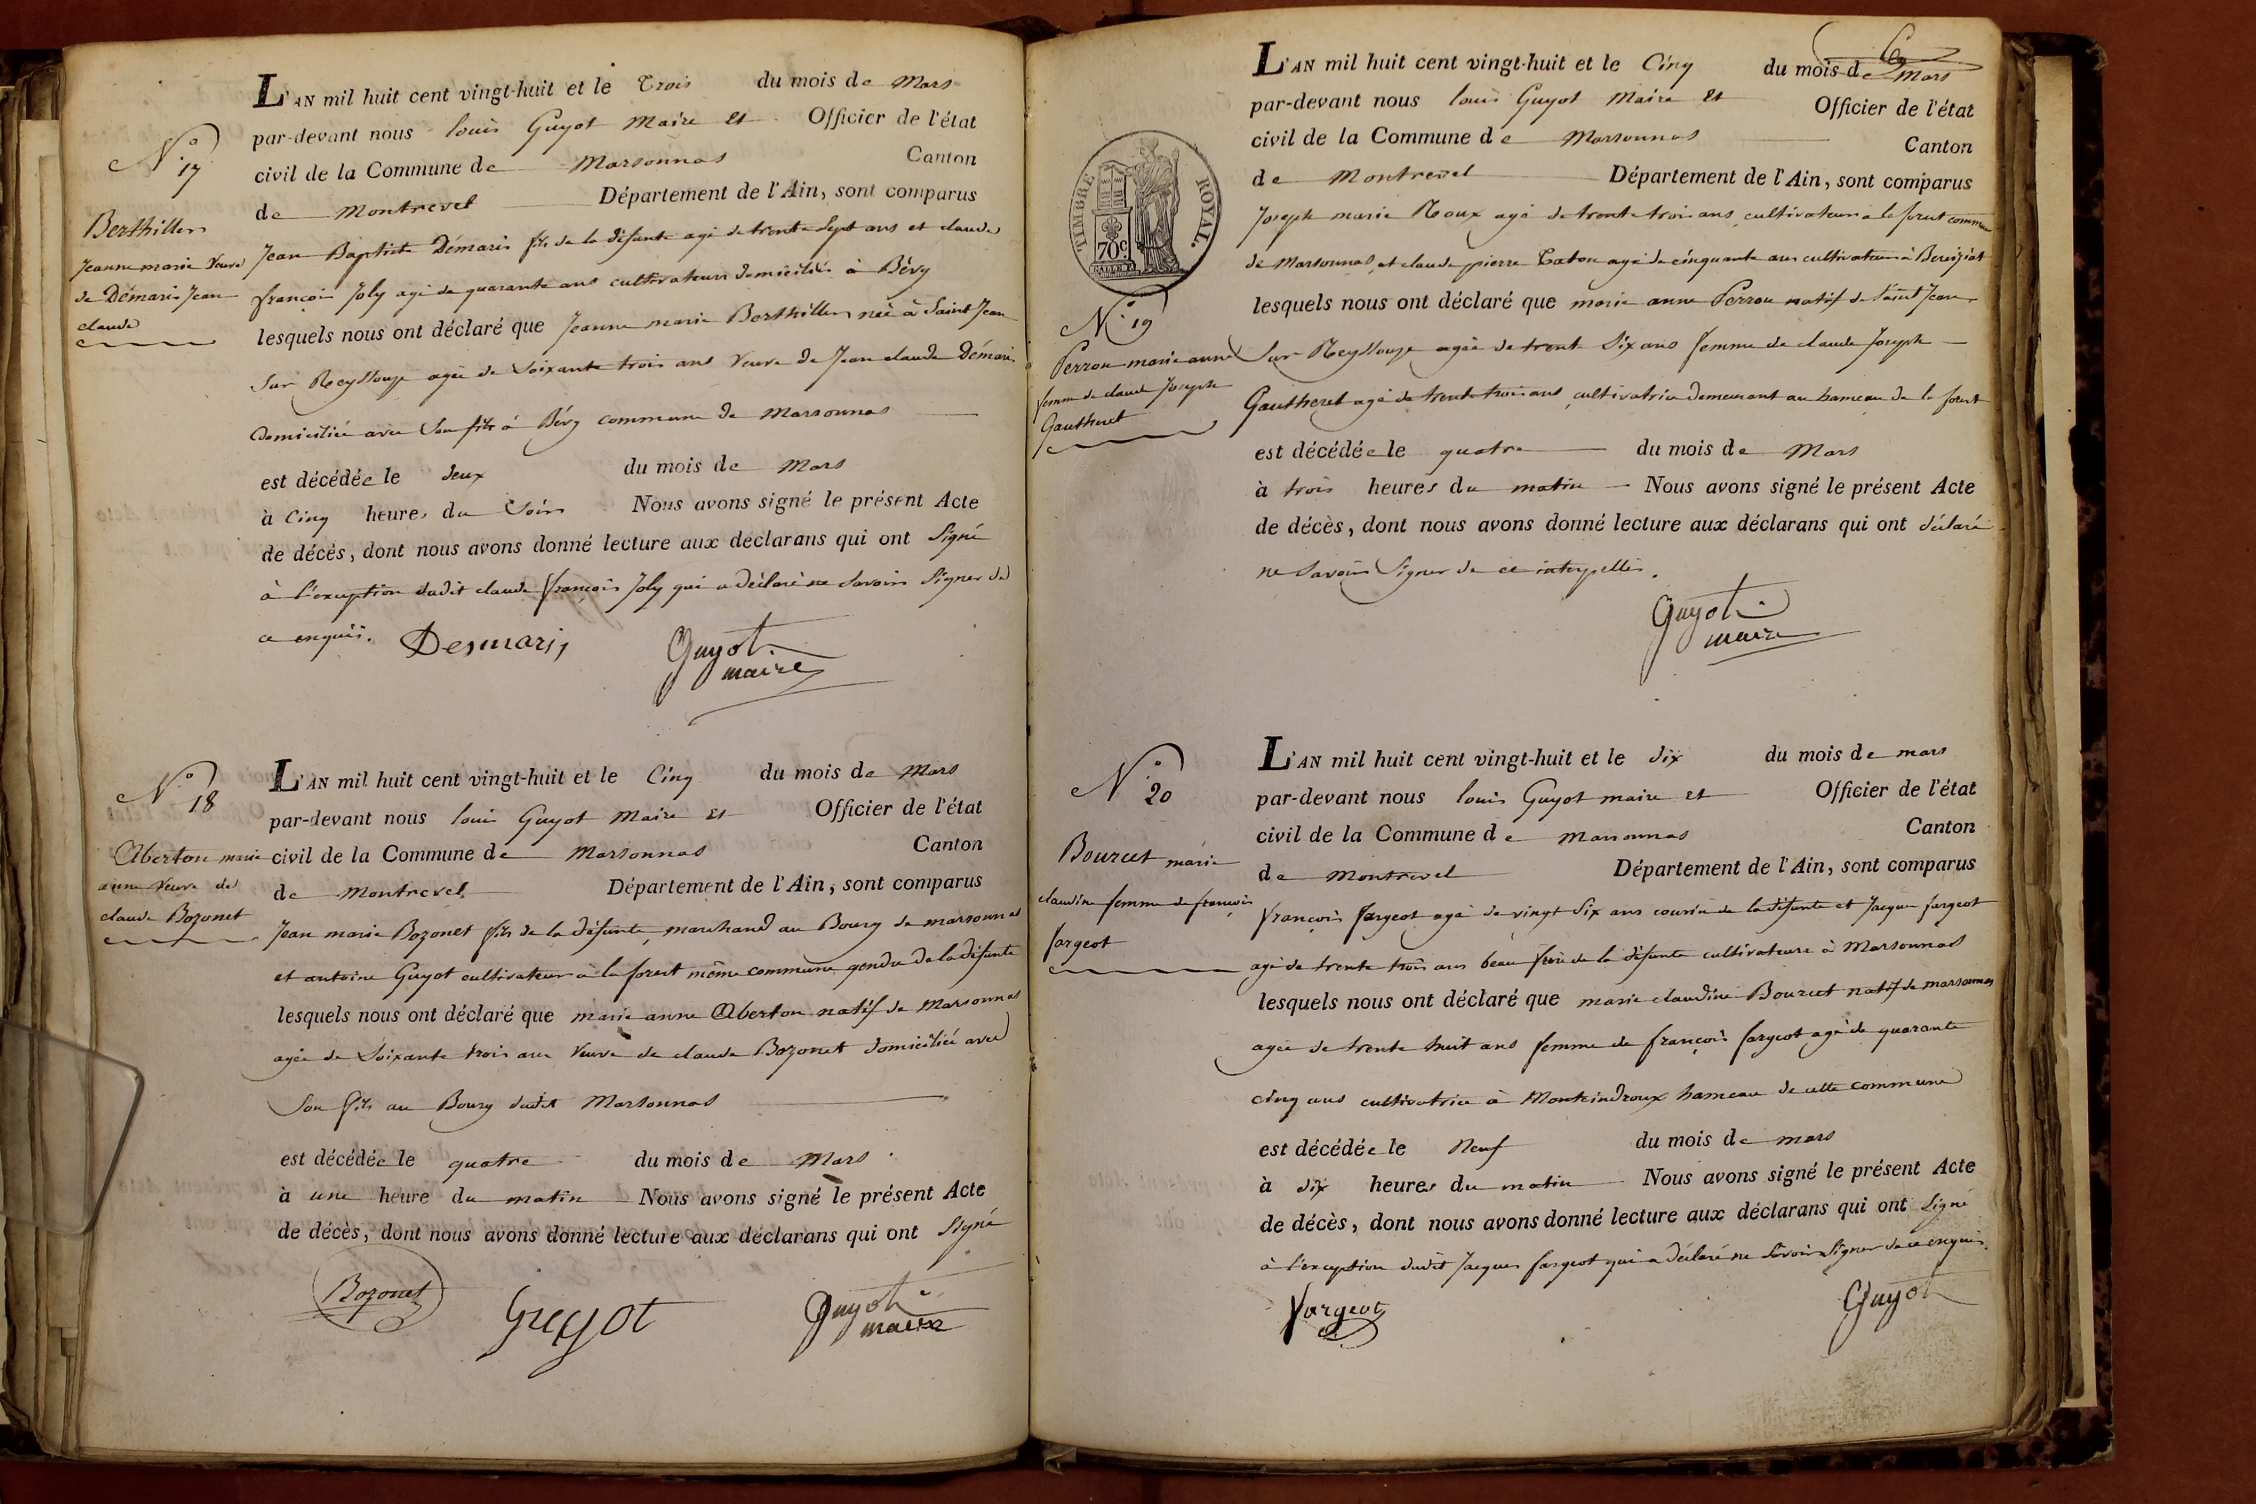 N° 17
Berthillen
Jeanne marie Veuve
de Démaris Jean
claude
L'AN mil huit cent vingt-huit et le Trois du mois de Mars
par-devant nous louis Guyot Maire et Officier de l'état
civil de la Commune de Marsonnas Canton
de Montrevel Département de l'Ain, sont comparus
Jean Baptiste Démaris fils de la défunte agé de trente sept ans et claude
françois Joly agé de quarante ans cultivateurs domiciliés à Bévy
lesquels nous ont déclaré que Jeanne marie Berthillen née à Saint Jean
Sur Reyssouze agée de Soixante trois ans Veuve de Jean claude Démaris
domiciliée avec Son fils à Bévy commune de Marsonnas
est décédée le deux du mois de Mars
à Cinq heures du Soir Nous avons signé le présent Acte
de décès, dont nous avons donné lecture aux déclarans qui ont Signé
à l'exception dudit claude françois Joly qui a déclaré ne Savoir Signer de
ce enquis. Desmaris Guyot
maire
N° 18
Aberton marie
anne Veuve de
claude Bozonet
L'AN mil huit cent vingt-huit et le Cinq du mois de Mars
par-devant nous louis Guyot Maire et Officier de l'état
civil de la Commune de Marsonnas Canton
de Montrevel Département de l'Ain, sont comparus
Jean marie Bozonet fils de la défunte, marchand au Bourg de marsonnas
et antoine Guyot cultivateur à la forest même commune gendre de la défunte
lesquels nous ont déclaré que marie anne Aberton natif de Marsonnas
agée de Soixante trois ans Veuve de claude Bozonet domiciliée avec
Son fils au Bourg dudit Marsonnas
est décédée le quatre du mois de Mars
à une heure du matin Nous avons signé le présent Acte
de décès, dont nous avons donné lecture aux déclarans qui ont Signé
Bozonet Guyot Guyot
maire
TIMBRE ROYAL.
70c
N° 19
Perron marie anne
femme de claude Joseph
Gautheret
L'AN mil huit cent vingt-huit et le Cinq du mois de Mars
par-devant nous louis Guyot Maire et Officier de l'état
civil de la Commune de Marsonnas Canton
de Montrevel Département de l'Ain, sont comparus
Joseph marie Roux agé de trente trois ans, cultivateur à la forest commune
de Marsonnas, et claude pierre Caton agé de cinquante ans cultivateur à Bereiziat
lesquels nous ont déclaré que marie anne Perron natif de Saint Jean
Sur Reyssouze agée de trent Six ans femme de claude Joseph
Gautheret agé de trente trois ans cultivatrice demeurant au hameau de la forest
est décédée le quatre du mois de Mars
à trois heures du matin Nous avons signé le présent Acte
de décès, dont nous avons donné lecture aux déclarans qui ont déclaré
ne Savoir Signer de ce interpellés.
Guyot
maire
N° 20
Bourcet marie
claudine femme de françois
fargeot
L'AN mil huit cent vingt-huit et le Six du mois de mars
par-devant nous louis Guyot maire et Officier de l'état
civil de la Commune de Marsonnas Canton
de Montrevel Département de l'Ain, sont comparus
françois fargeot agé de vingt Six ans cousin de la défunte et Jacques fargeot
agé de trente trois ans beau frère de la défunte cultivateurs à Marsonnas
lesquels nous ont déclaré que marie claudine Bourcet natif de marsonnas
agée de trente huit ans femme de françois fargeot agé de quarante
cinq ans cultivatrice à Monteindroux hameau de cette commune
est décédée le Neuf du mois de mars
à dix heures du matin Nous avons signé le présent Acte
de décès, dont nous avons donné lecture aux déclarans qui ont Signé
à l'exception dudit Jacques fargeot qui a déclaré ne Savoir Signer de ce enquis.
Fargeot Guyot